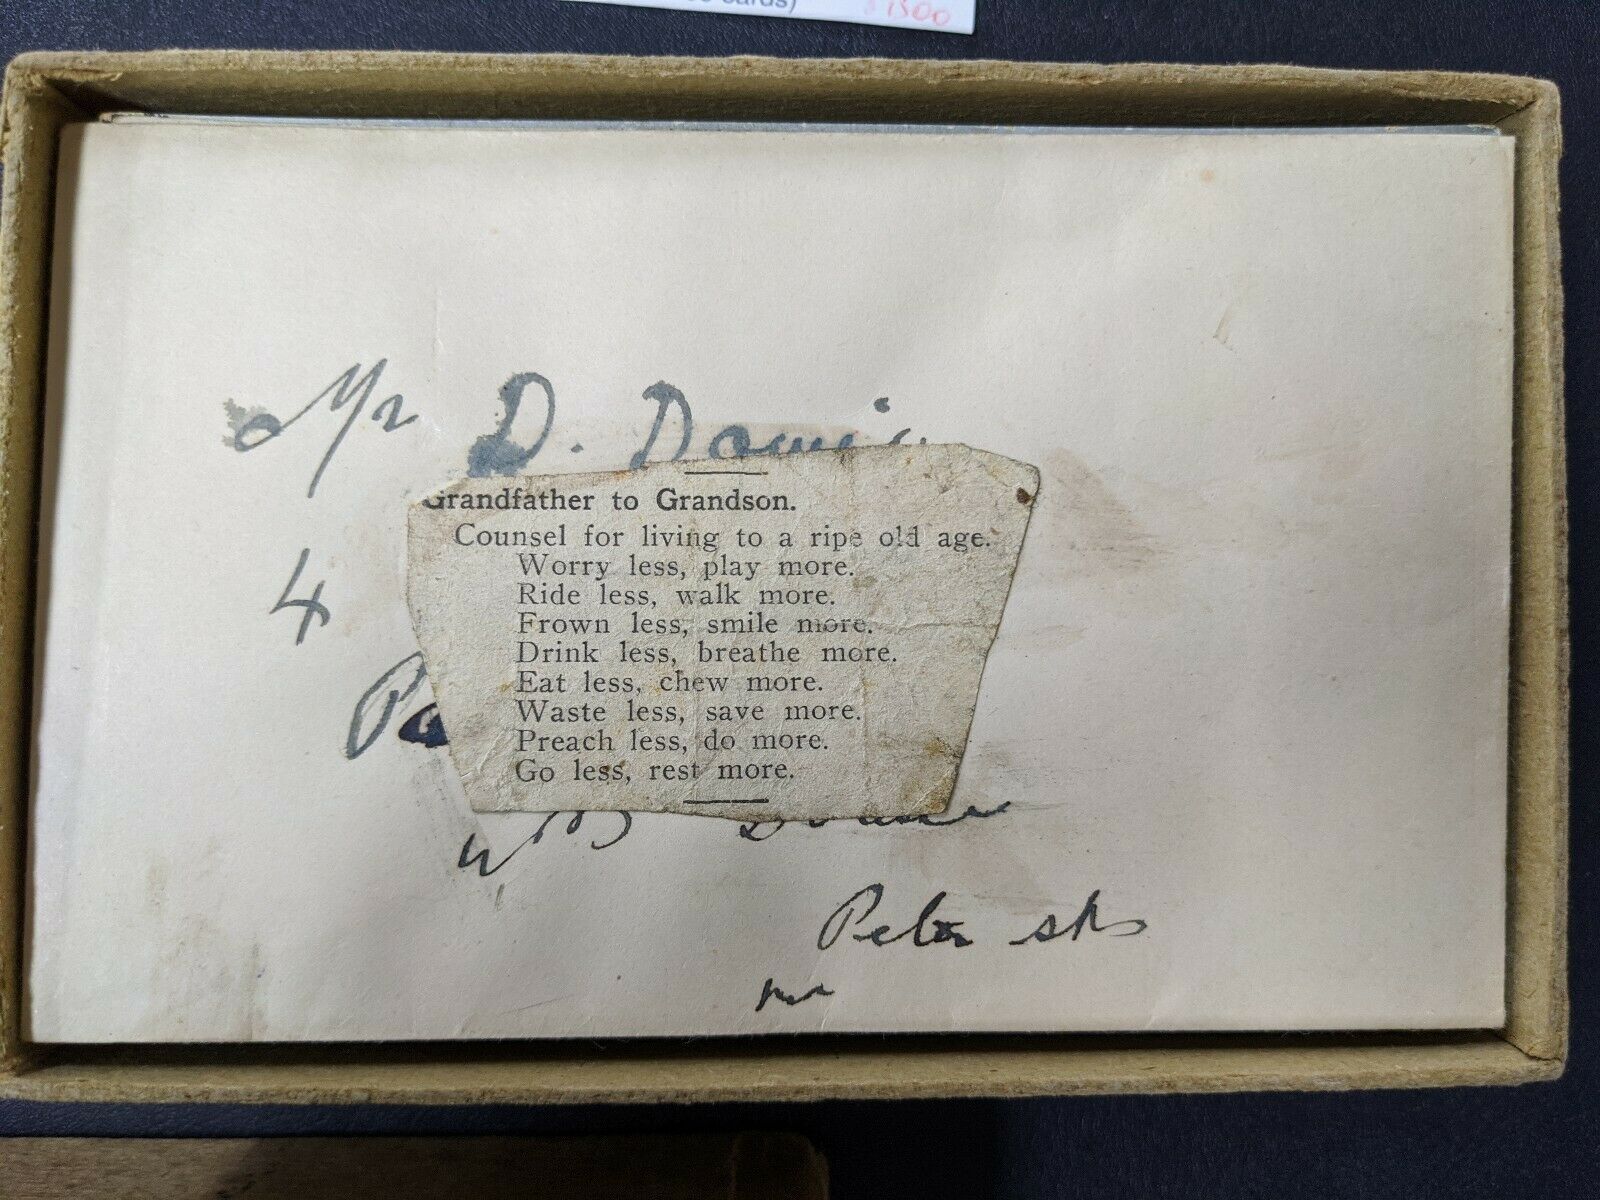 cards)
Mr D.
Grandfather to Grandson.
Counsel for living to a ripe old age.
Worry less, play more.
Ride less, walk more.
Frown less, smile more.
Drink less, breathe more.
Eat less, chew more.
Waste less, save more.
Preach less, do more.
Go less, rest more.
4